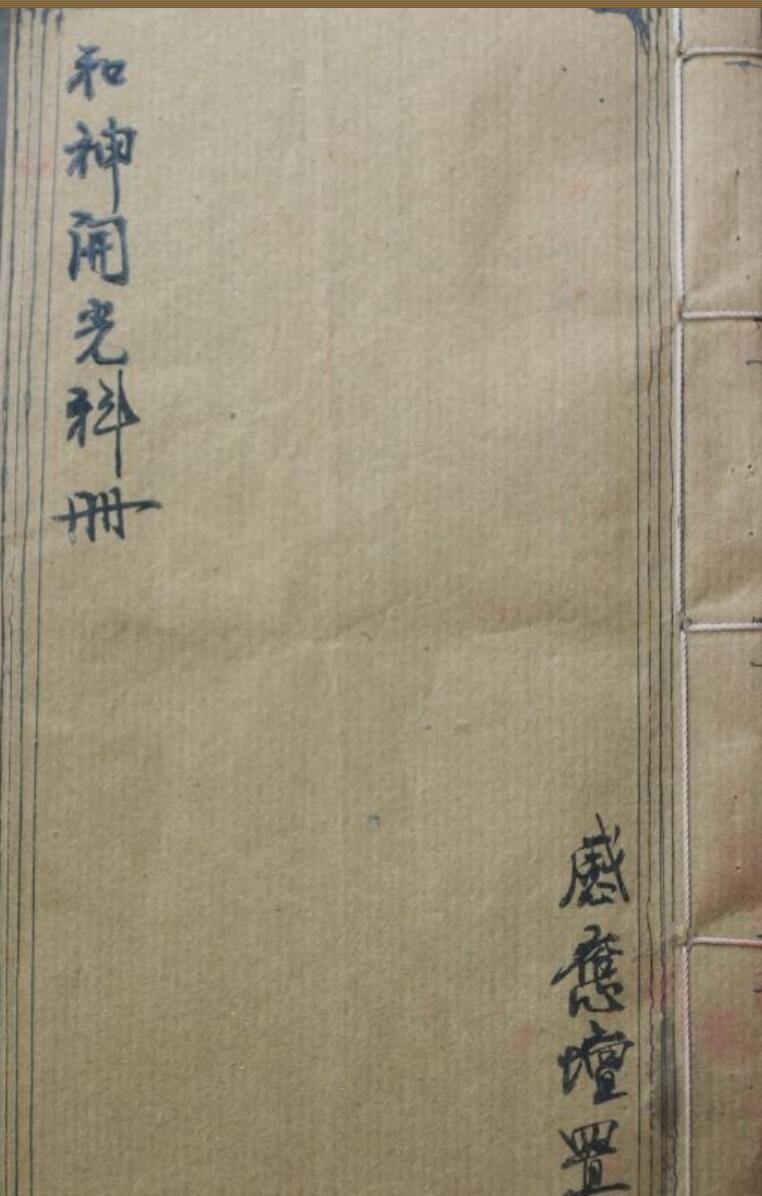 和神開光科冊
感應壇置